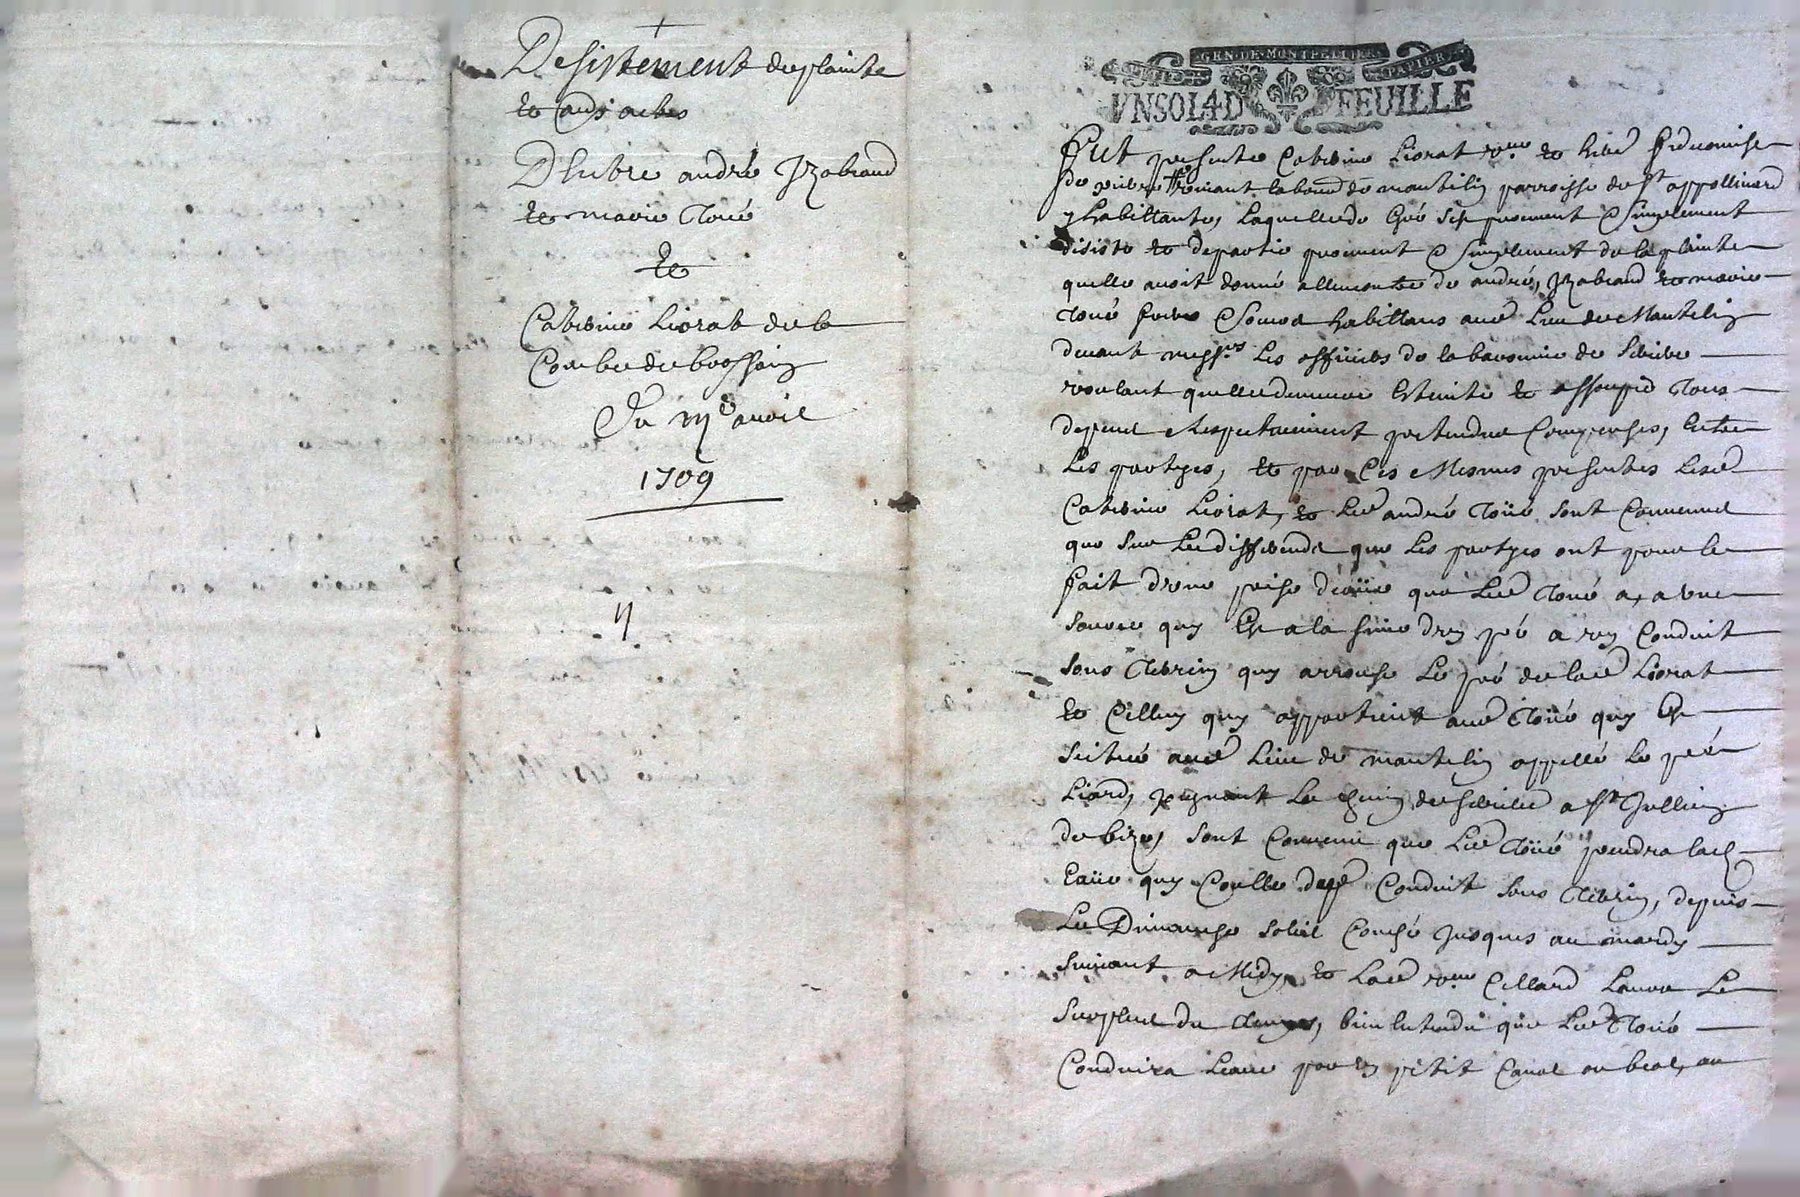 Desistement de plainte
et aus actes
D'entre andré Izabeaud
et marie Toüé
et
Caterine Liorat de la
Combe de brossain
Du m.e avril
1709
GEN·DE·MONTPELLIER
PAPIER
VN SOL 4 D FEUILLE
Fut presente Caterine Liorat
parroisse de st appollinard
habittante, laquelle de gré purement & simplement
desiste et departie purement & simplement de la plainte
quelle avoit donné allencontre de andré, Izabeaud et marie
Toüé habittans Lieu de Mantelin
devant mess.rs Les officiers de la baronnie de
voulant quelle demeure Esteinte et assoupie
Les partyes, et par Ces Mesmes presentes
Caterine Liorat, et andré Toüé sont Convenue
que sur Le differends que Les partyes ont pour le
fait d'une prise d'eaüe que Toüé a, a une
source quy Est a la sime d'un pré a un Conduit
sous Terrin quy arrouse Le pré de Liorat
et Celluy quy appartient Toüé quy Est
scitué Lieu de mantelin appellé Le pré
Liard, joignant Le chemin de a st Jullien
de bize, sont Convenu que Toüé prendra
Eaüe quy Coulle Conduit sous Terrin, depuis
Le Dimanche soleil Couché jusques au mardy
suivant a Midy, et Cellard Laura Le
surplus du temps, bien Entendu que Toüé
Conduira Leaue par un petit Canal ou beal, au